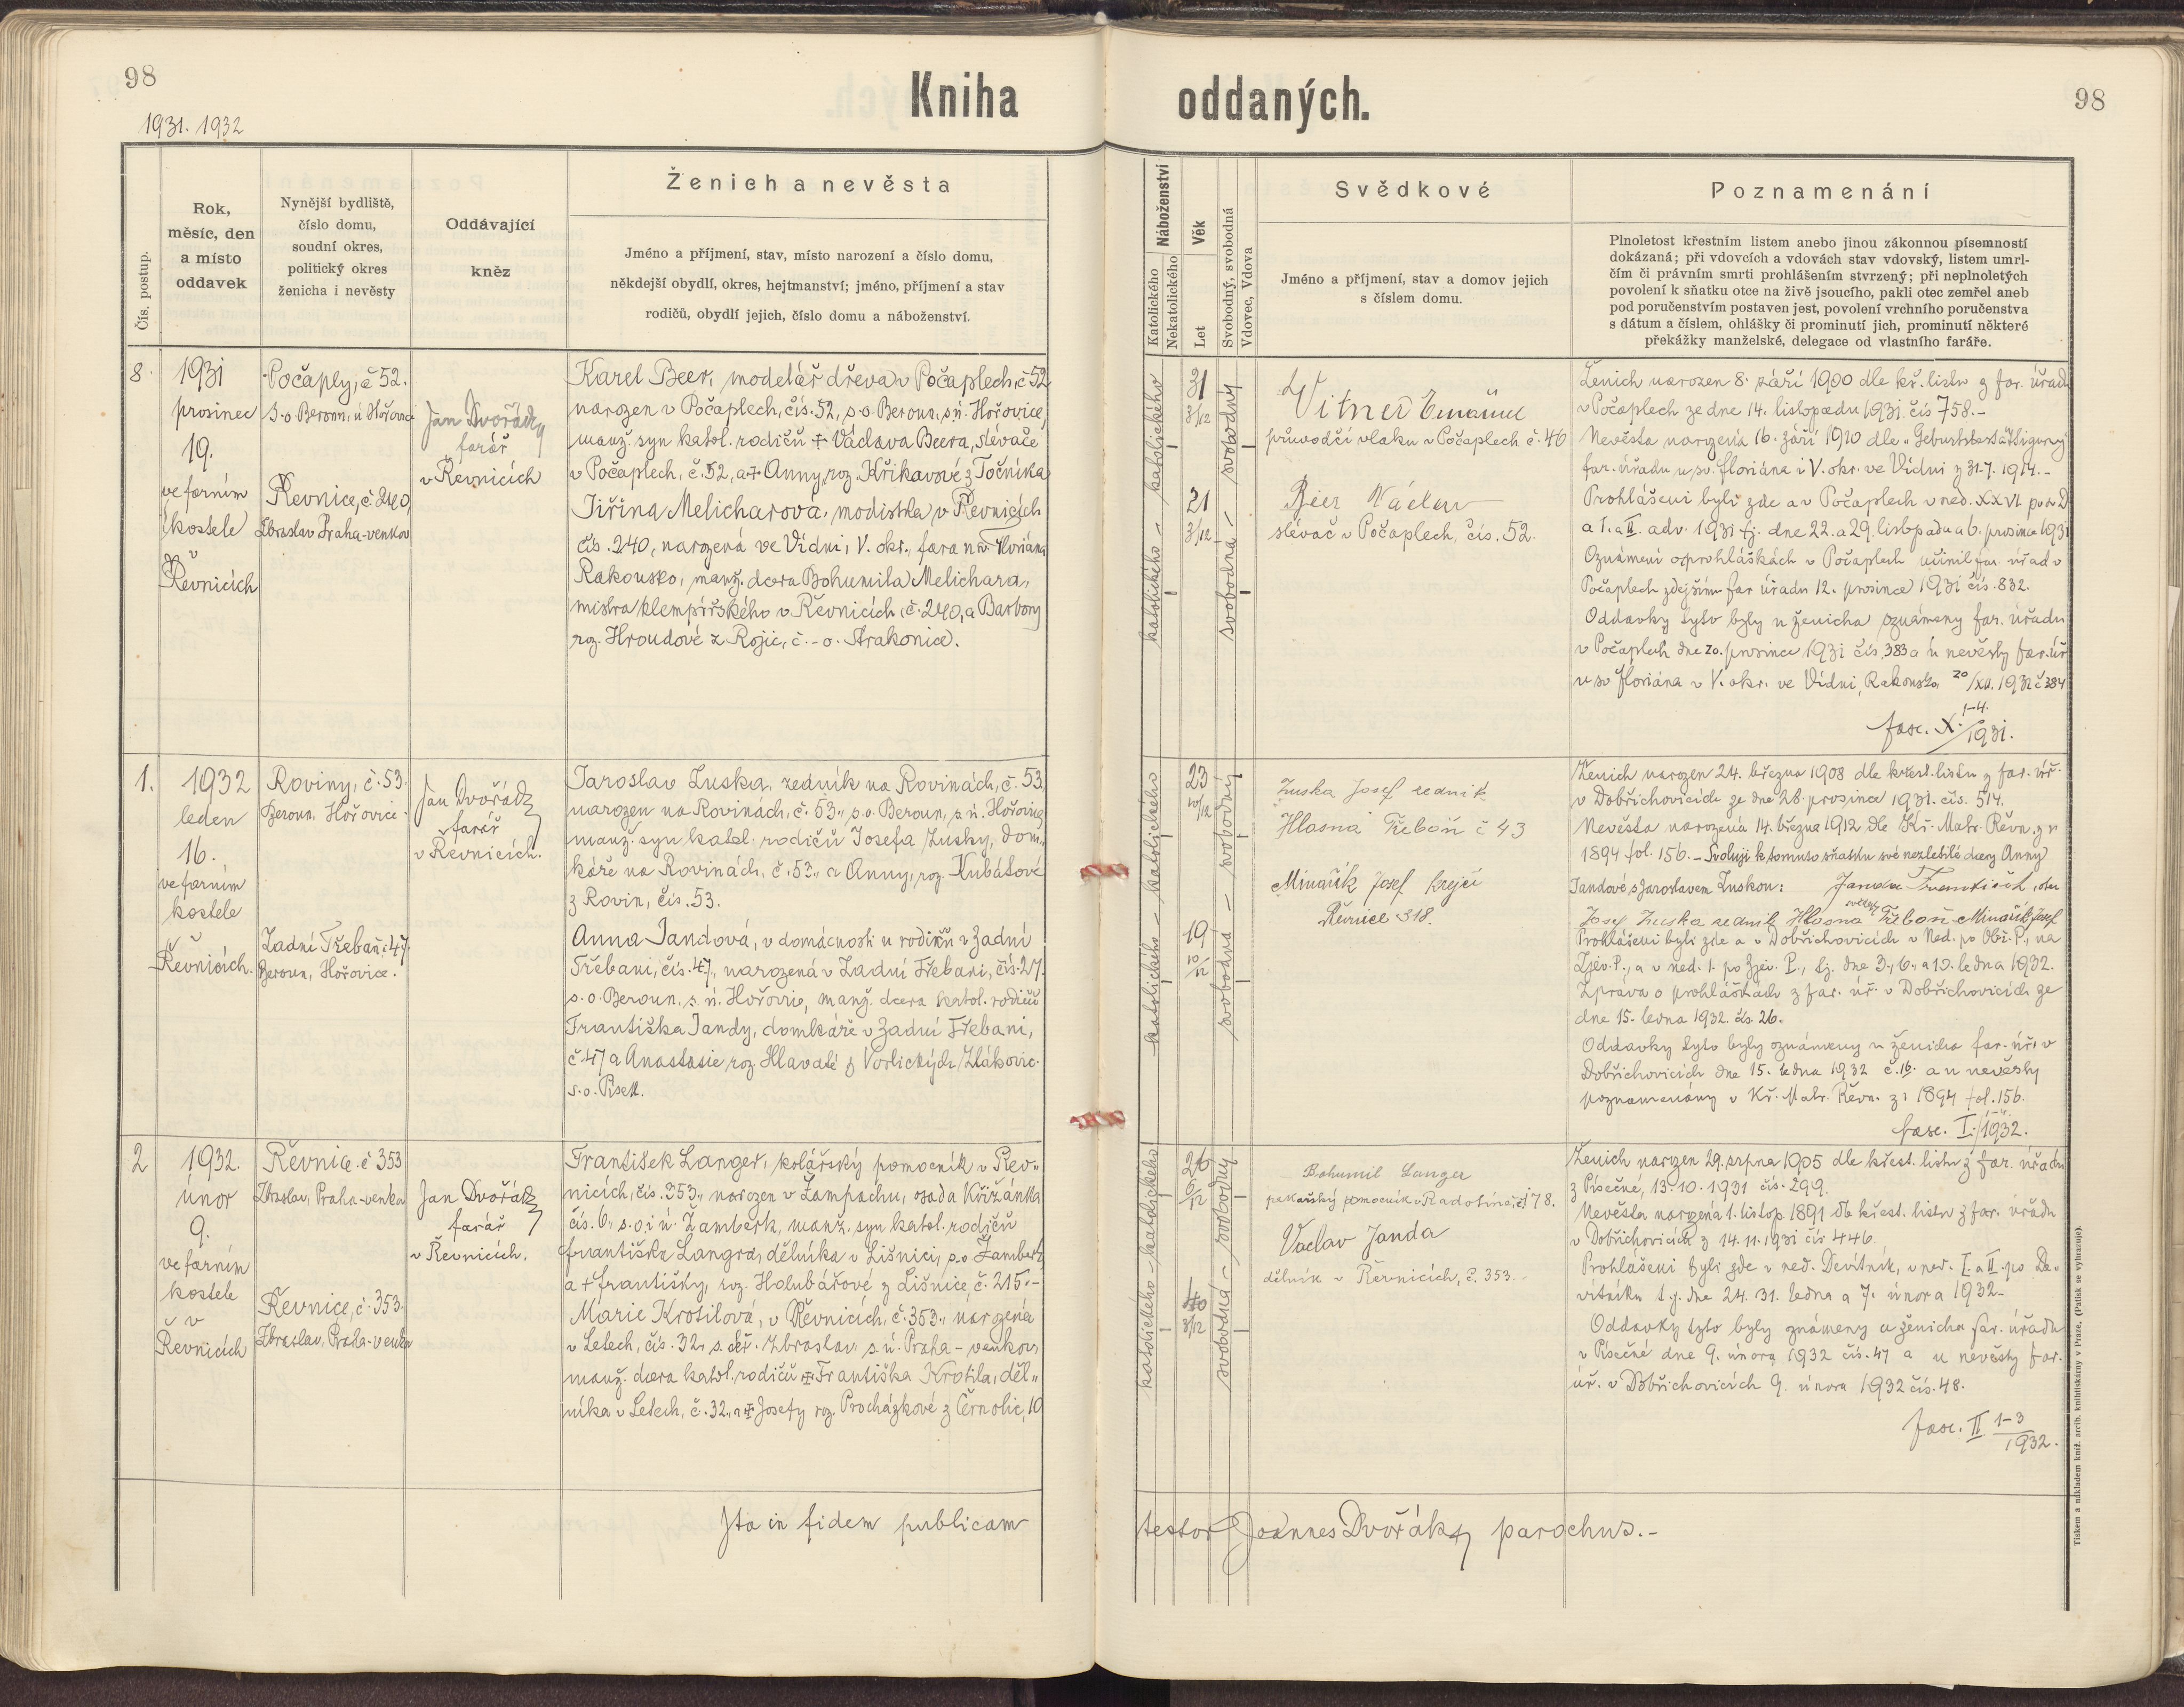 98
Kniha oddaných.
98
1931. 1932
Čís. postup.
Rok,
měsíc, den
a místo
oddavek
Nynější bydliště,
číslo domu,
soudní okres,
politický okres
ženicha i nevěsty
Oddávající
kněz
Ženich a nevěsta
Jméno a příjmení, stav, místo narození a číslo domu,
někdejší obydlí, okres, hejtmanství; jméno, příjmení a stav
rodičů, obydlí jejich, číslo domu a náboženství.
Náboženství
Katolického
Nekatolického
Věk
Let
Svobodný, svobodná
Vdovec, Vdova
Svědkové
Jméno a příjmení, stav a domov jejich
s číslem domu.
Poznamenání
Plnoletost křestním listem anebo jinou zákonnou písemností
dokázaná; při vdovcích a vdovách stav vdovský, listem umrl-
čím či právním smrti prohlášením stvrzený; při neplnoletých
povolení k sňatku otce na živě jsoucího, pakli otec zemřel aneb
pod poručenstvím postaven jest, povolení vrchního poručenstva
s dátum a číslem, ohlášky či prominutí jich, prominutí některé
překážky manželské, delegace od vlastního faráře.
8.
1931
prosinec
19.
ve farním
kostele
v
Řevnicích
Počaply, č 52.
s.o Beroun, ú Hořovice
Řevnice, č. 240,
Zbraslav Praha-venkov
Jan Dvořák
farář
v Řevnicích
Karel Beer, modelář dřeva v Počaplech, č 52
narozen v Počaplech, čís. 52, s.o. Beroun, s.ú. Hořovice,
manž. syn katol. rodičů + Václava Beera, slévače
v Počaplech, č. 52, a + Anny, roz. Křikavové z Točníka
Jiřina Melicharová, modistka v Řevnicích
čís. 240, narozená ve Vídni, V. okr., fara u sv. Floriána
Rakousko, manž. dcera Bohumila Melichara,
mistra klempířského v Řevnicích, č. 240, a Barbory
roz. Hroudové z Rojic, č. - o. Strakonice.
katolického - katolického
31
3/12
21
3/12
svobodná - svobodný
Vitner Emanuel
průvodčí vlaku v Počaplech č. 46
Beer Václav
slévač v Počaplech, čís. 52.
Ženich narozen 8. září 1900 dle kř. listu z far. úřadu
v Počaplech ze dne 14. listopadu 1931. čís 758.-
Nevěsta narozená 16. září 1910 dle
far. úřadu u sv. Floriána v V. okr. ve Vídni z 31.7. 1914.-
Prohlášeni byli zde a v Počaplech v ned. XXVI po sv. D
a I. a II. adv. 1931 tj. dne 22. a 29. listopadu a 6. prosince 1931
Oznámení o prohláškách v Počaplech učinil far. úřad v
Počaplech zdejšímu far úřadu 12. prosince 1931 čís. 832.
Oddavky tyto byly u ženicha oznámeny far. úřadu
v Počaplech dne 20. prosince 1931 čís. 383 a u nevěsty far. úř
u sv Floriána v V. okr. ve Vídni, Rakousko, 20/XII. 1931 č 384
fasc. X. 1-4./1931.
1.
1932
leden
16.
ve farním
kostele
v
Řevnicích.
Roviny, č. 53.
Beroun, Hořovice.
Zadní Třebaň č. 47
Beroun, Hořovice.
Jan Dvořák
farář
v Řevnicích.
Jaroslav Zuska, zedník na Rovinách, č. 53
narozen na Rovinách, č. 53., s.o. Beroun, s.ú. Hořovice
manž. syn katol. rodičů Josefa Zusky, dom„
káře na Rovinách, č. 53., a Anny, roz. Kubátové
z Rovin, čís. 53.
Anna Jandová, v domácnosti u rodičů v Zadní
Třebani, čís. 47, narozená v Zadní Třebani, čís. 27.
s.o. Beroun, s. ú. Hořovic, manž. dcera katol. rodičů
Františka Jandy, domkáře v Zadní Třebani,
č. 47 a Anastasie roz. Hlavaté z Vorlických Zlákovic
s.o. Písek.
katolického - katolického
23
10/12
19
10/12
svobodná - svobodný
Zuska Josef zedník
Hlasná Třebaň č 43
Minařík Josef krejčí
Řevnice 318.
Ženich narozen 24. března 1908 dle křest. listu z far. úř.
v Dobřichovicích ze dne 28. prosince 1931. čís. 514.
Nevěsta narozená 14. března 1912 dle Kř. Matr. Řevn. z r
1894 fol. 156. - Svoluji k tomuto sňatku své nezletilé dcery Anny
Jandové s Jaroslavem Zuskou: Janda František, otec
svědky
Josef Zuska zedník Hlasná Třebaň Minařík Josef
Prohlášeni byli zde a v Dobřichovicích v Ned. po Obř. P., na
Zjev. P., a v ned. 1. po Zjev. P., tj. dne 3., 6., a 10. ledna 1932.
Zpráva o prohláškách z far. úř. v Dobřichovicích ze
dne 15. ledna 1932. čís. 26.
Oddavky tyto byly oznámeny u ženicha far. úři v
Dobřichovicích dne 15. ledna 1932 č. 16. a u nevěsty
poznamenány v Kř. Matr. Řevn. z r 1894 fol. 156.
fasc. I. 1-4./1932.
2
1932.
únor
9.
ve farním
kostele
v
Řevnicích
Řevnice č 353
Zbraslav, Praha-venkov
Řevnice, č. 353.
Zbraslav, Praha-venkov
Jan Dvořák
farář
v Řevnicích.
František Langer, kolářský pomocník v Řev„
nicích, čís. 353., narozen v Žampachu, osada Křižánka
čís. 6., s.o i ú. Žamberk, manž. syn katol. rodičů
Františka Langra, dělníka v Lišnici, s.o Žamberk
a + Františky, roz. Holubářové z Lišnice, č. 215.-
Marie Krotilová, v Řevnicích, č. 353., narozená
v Letech, čís. 32, s. okr. Zbraslav s. ú. Praha - venkov
manž. dcera katol. rodičů + Františka Krotila, děl„
níka v Letech, č. 32., a + Josefy roz. Procházkové z Černolic, 10
katolického - katolického
26
6/12
40
3/12
svobodná - svobodný
Bohumil Langer
pekařský pomocník v Radotíně, č. 178.
Václav Janda
dělník v Řevnicích, č. 353.
Ženich narozen 29. srpna 1905 dle křest. listu z far. úřadu
z Písečné, 13. 10. 1931 čís. 299.
Nevěsta narozená 1. listop. 1891 dle křest. listu z far. úřadu
v Dobřichovicích z 14. 11. 1931 čís 446.
Prohlášeni byli zde v ned. Devítník, v ned. I. a II. po De„
vítníku t. j. dne 24. 31. ledna a 7. února 1932.
Oddavky tyto byly oznámeny u ženicha far. úřadu
v Písečné dne 9. února 1932 čís. 47 a u nevěsty far.
úř. v Dobřichovicích 9. února 1932 čís. 48.
fasc. II 1-3/1932.
Ita in fidem publicam testor Joannes Dvořák, parochus.-
Tiskem a nákladem kníž. arcib. knihtiskárny v Praze, (Patisk se vyhrazuje).